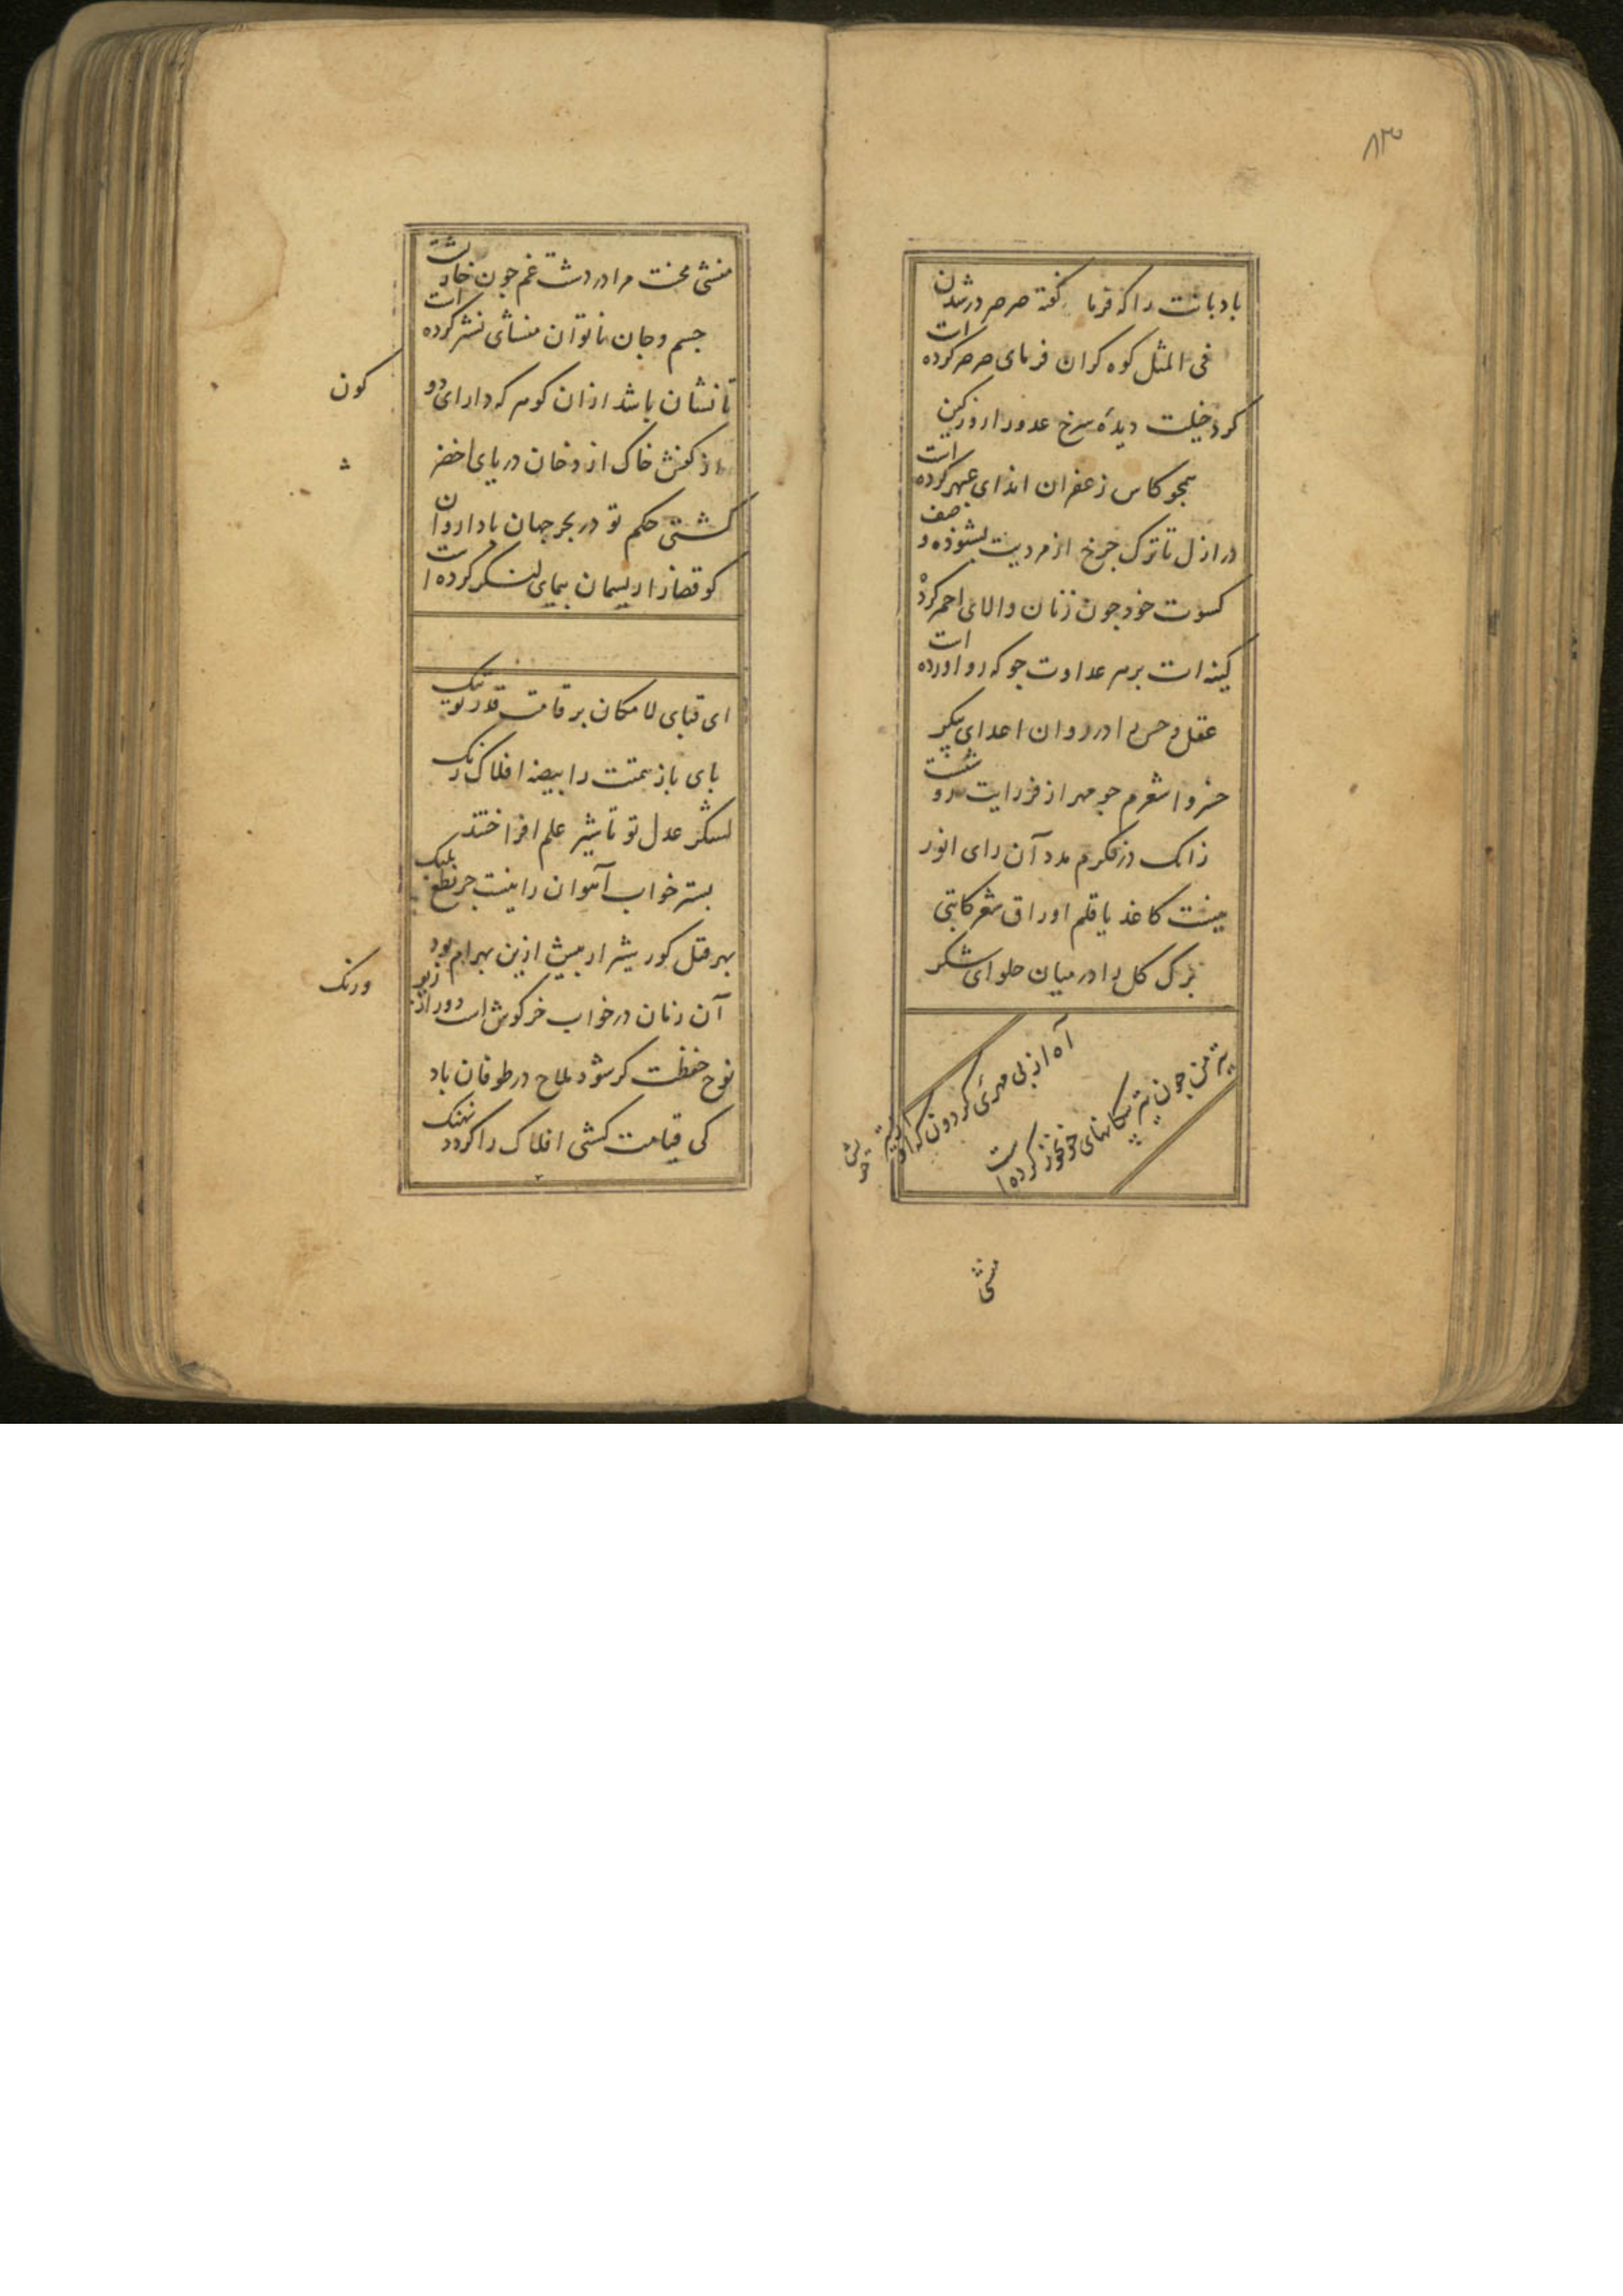 ۸۳
بادبانت را که فرما گفته صرصر در شدن
فی المثل کوه کران فرمای صرصر کرده است
کرد خیلت دیدهٔ سرخ عدو را روز کین
همچو کاس زعفران اندای عبهر کرده است
در ازل تا ترک چرخ از مردیت بشنوده وصف
کسوت خود چون زنان والای احمر کرده
کینه ات بر سر عداوت جو که رو اورده است
عقل و حس را در روان اعدای پیکر
خسروا شعرم چو مهر از فر رایت شست رو
زانک در فکرم مدد آن رای انور
نیست کاغذ با قلم اوراق شعر کاتبی
برک کل را در میان حلوای شکر
آه از بی مهرئ کردون که از تیر
تنم چون تیر پیکانهای خونخوار کرده است
منشی
منشی محنت مرا در دشت غم چون خار پشت
جسم و جان ناتوان منشای نشتر کرده است
تا نشان باشد ازان کوهر که دارای دو کون
از کفش خاک از دخان دریای اخضر
کشتی حکم تو در بحر جهان بادا روان
کو قضا را ریسمان پیمای لنکر کرده است
ای قبای لامکان بر قامت قدر تو تنک
پای باز همتت را بیضه افلاک رنک
لشکر عدل تو تا شیر علم افراختند
بستر خواب آهوان را نیست جز نطع پلنک
بهر قتل کور شیر ار پیش ازین بهرام بود
آن زنان در خواب خرکوش است دور از زیو ورنک
نوح حفظت کر شود ملاح در طوفان باد
کی قیامت کشتی افلاک را کردد نهنک